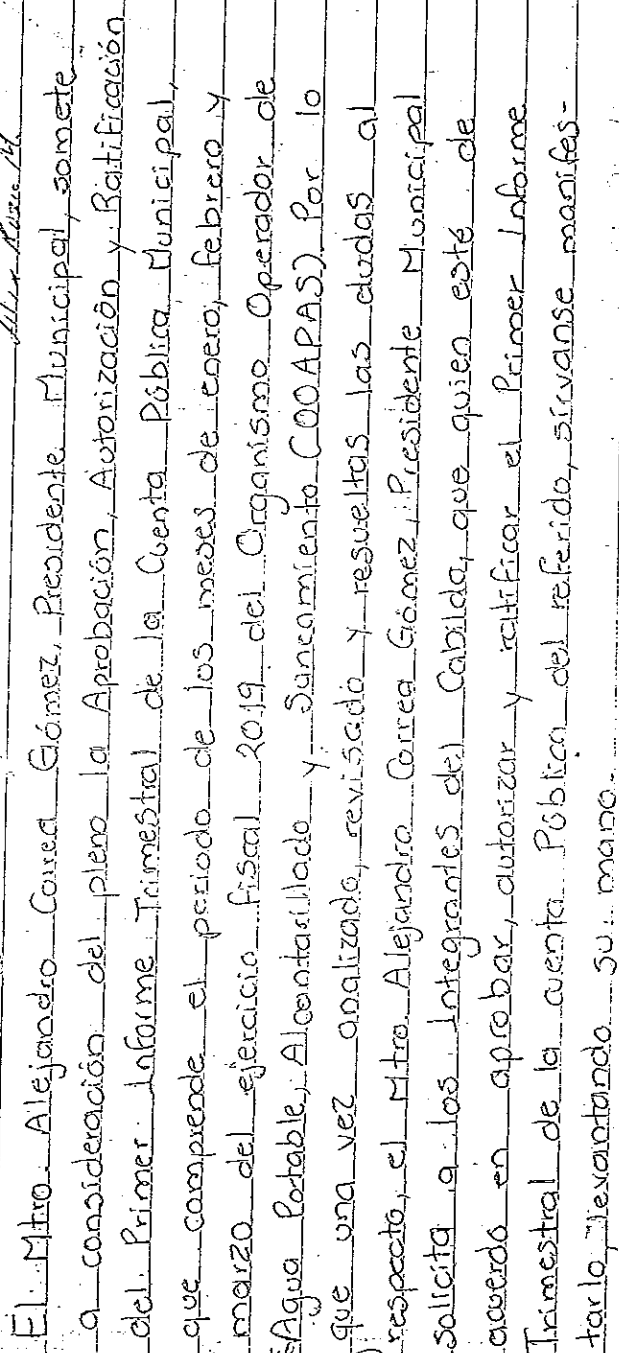 El Mtro. Alejandro Correa Gómez, Presidente Municipal, somete
a consideración del pleno la Aprobación, Autorización y Ratificación
del Primer Informe Trimestral de la Cuenta Pública Municipal,
que comprende el periodo de los meses de enero, febrero y
marzo del ejercicio fiscal 2019 del Organismo Operador de
Agua Potable, Alcantarillado y Saneamiento (OOAPAS). Por lo
que una vez analizado, revisado y resueltas las dudas al
respecto, el Mtro. Alejandro Correa Gómez, Presidente Municipal
solicita a los Integrantes del Cabildo, que quien esté de
acuerdo en aprobar, autorizar y ratificar el Primer Informe
Trimestral de la cuenta Pública del referido, sírvanse manifes-
tarlo, levantando su mano.